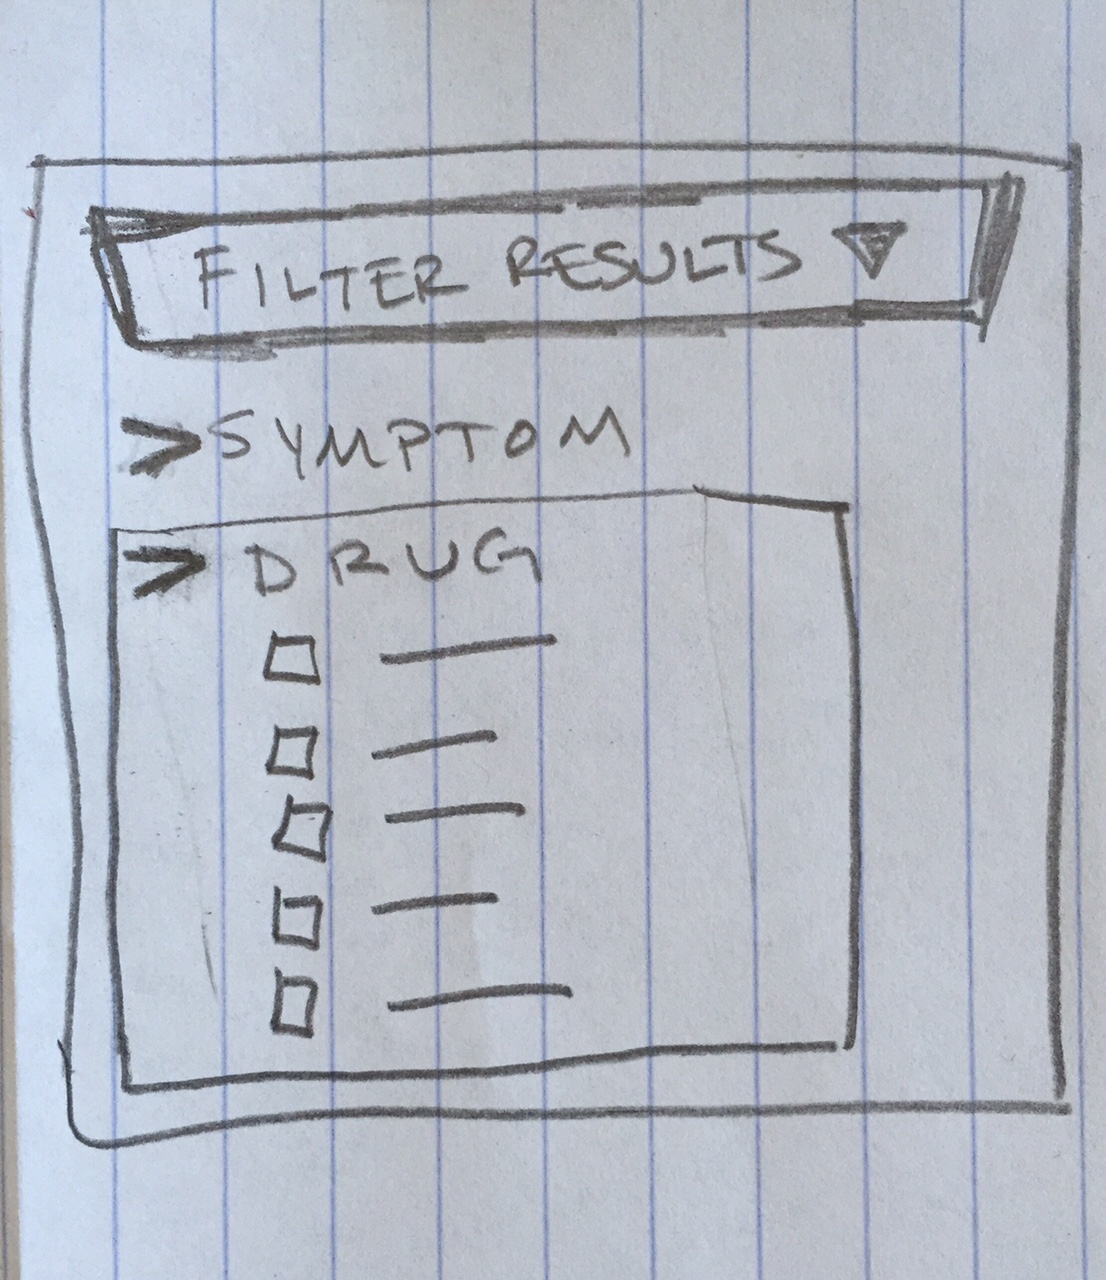 FILTER RESULTS ▼
> SYMPTOM
> DRUG